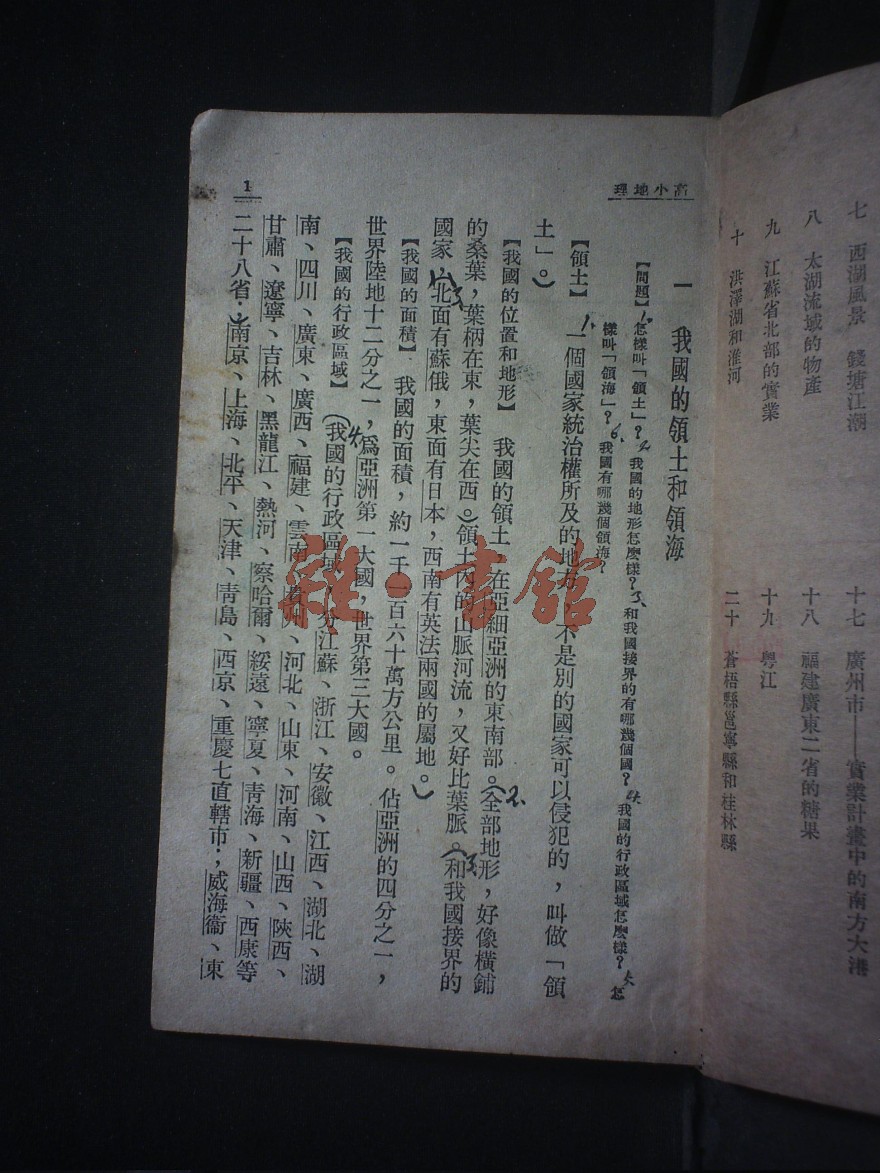 七　西湖風景　錢塘江潮
八　太湖流域的物產
九　江蘇省北部的實業
十　洪澤湖和淮河
十七　廣州市——實業計畫中的南方大港
十八　福建廣東二省的糖果
十九　粵江
二十　蒼梧縣邕寧縣和桂林縣
高小地理
1
一　我國的領土和領海
【問題】1.怎樣叫「領土」？2.我國的地形怎麼樣？3.和我國接界的有哪幾個國？4.我國的行政區域怎麼樣？5.怎
樣叫「領海」？6.我國有哪幾個領海？
【領土】　1.一個國家統治權所及的地方，不是別的國家可以侵犯的，叫做「領
土」。）
【我國的位置和地形】　我國的領土，在亞細亞洲的東南部。（2.全部地形，好像橫鋪
的桑葉，葉柄在東，葉尖在西。）領土內的山脈河流，又好比葉脈。（3.和我國接界的
國家，北面有蘇俄，東面有日本，西南有英法兩國的屬地。）
【我國的面積】　我國的面積，約一千一百六十萬方公里。佔亞洲的四分之一，
世界陸地十二分之一，爲亞洲第一大國，世界第三大國。
【我國的行政區域】　4.（我國的行政區域，分江蘇、浙江、安徽、江西、湖北、湖
南、四川、廣東、廣西、福建、雲南、貴州、河北、山東、河南、山西、陝西、
甘肅、遼寧、吉林、黑龍江、熱河、察哈爾、綏遠、寧夏、青海、新疆、西康等
二十八省；）南京、上海、北平、天津、青島、西京、重慶七直轄市；威海衞、東
雜·書館